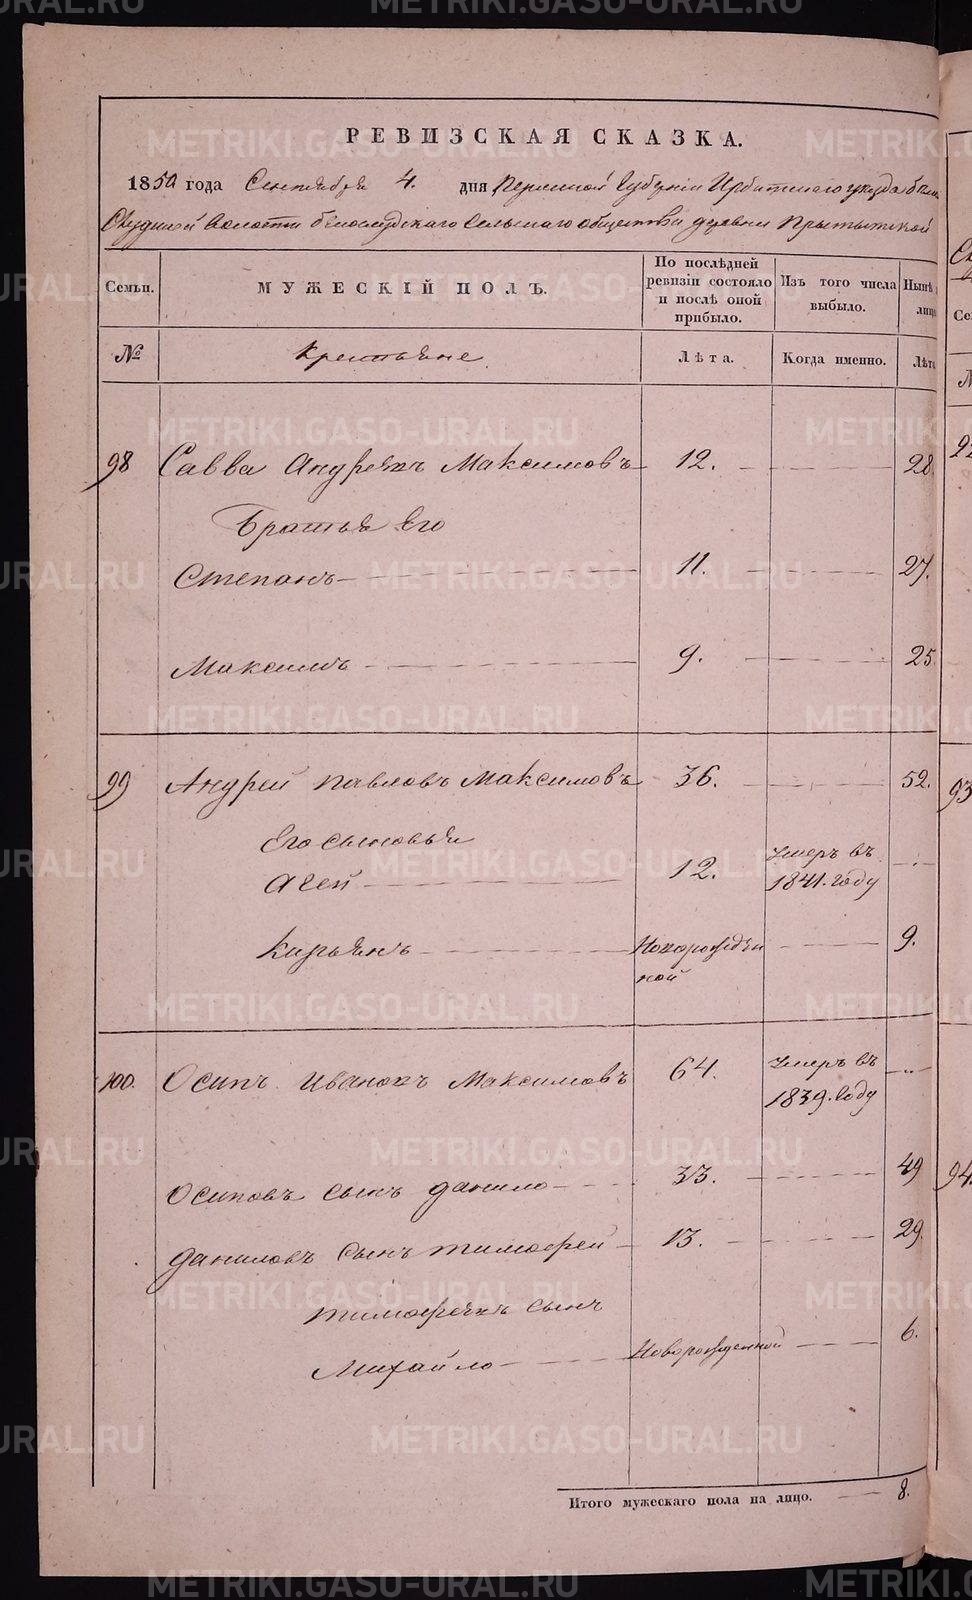 РЕВИЗСКАЯ СКАЗКА.
1850 года Сентября 4. дня Пермской Губернiи Ирбитскаго уезда Бело
Слудской волости Белослудскаго Сельскаго общества деревни
Семьи. МУЖЕСКIЙ ПОЛЪ. По послѣдней ревизiи состояло и послѣ оной прибыло. Изъ того числа выбыло. Нынѣ лицо
№ Крестьяне Лѣта. Когда именно. Лѣта
98 Савва Андреевъ Максимовъ 12. 28.
Братья Его
Степанъ 11. 27.
Максимъ 9. 25.
99 Андрей Павловъ Максимовъ 36. 52.
Его сыновья
Агей 12. Умеръ въ 1841. году
Кирьянъ Новорожден ной 9.
100. Осипъ Ивановъ Максимовъ 64. Умеръ въ 1839. году
Осиповъ сынъ Данило 33. 49
Даниловъ Сынъ Тимофей 13. 29.
Тимофеевъ сынъ
Михайло Новорожденной 6.
Итого мужескаго пола на лицо. 8.
METRIKI.GASO-URAL.RU